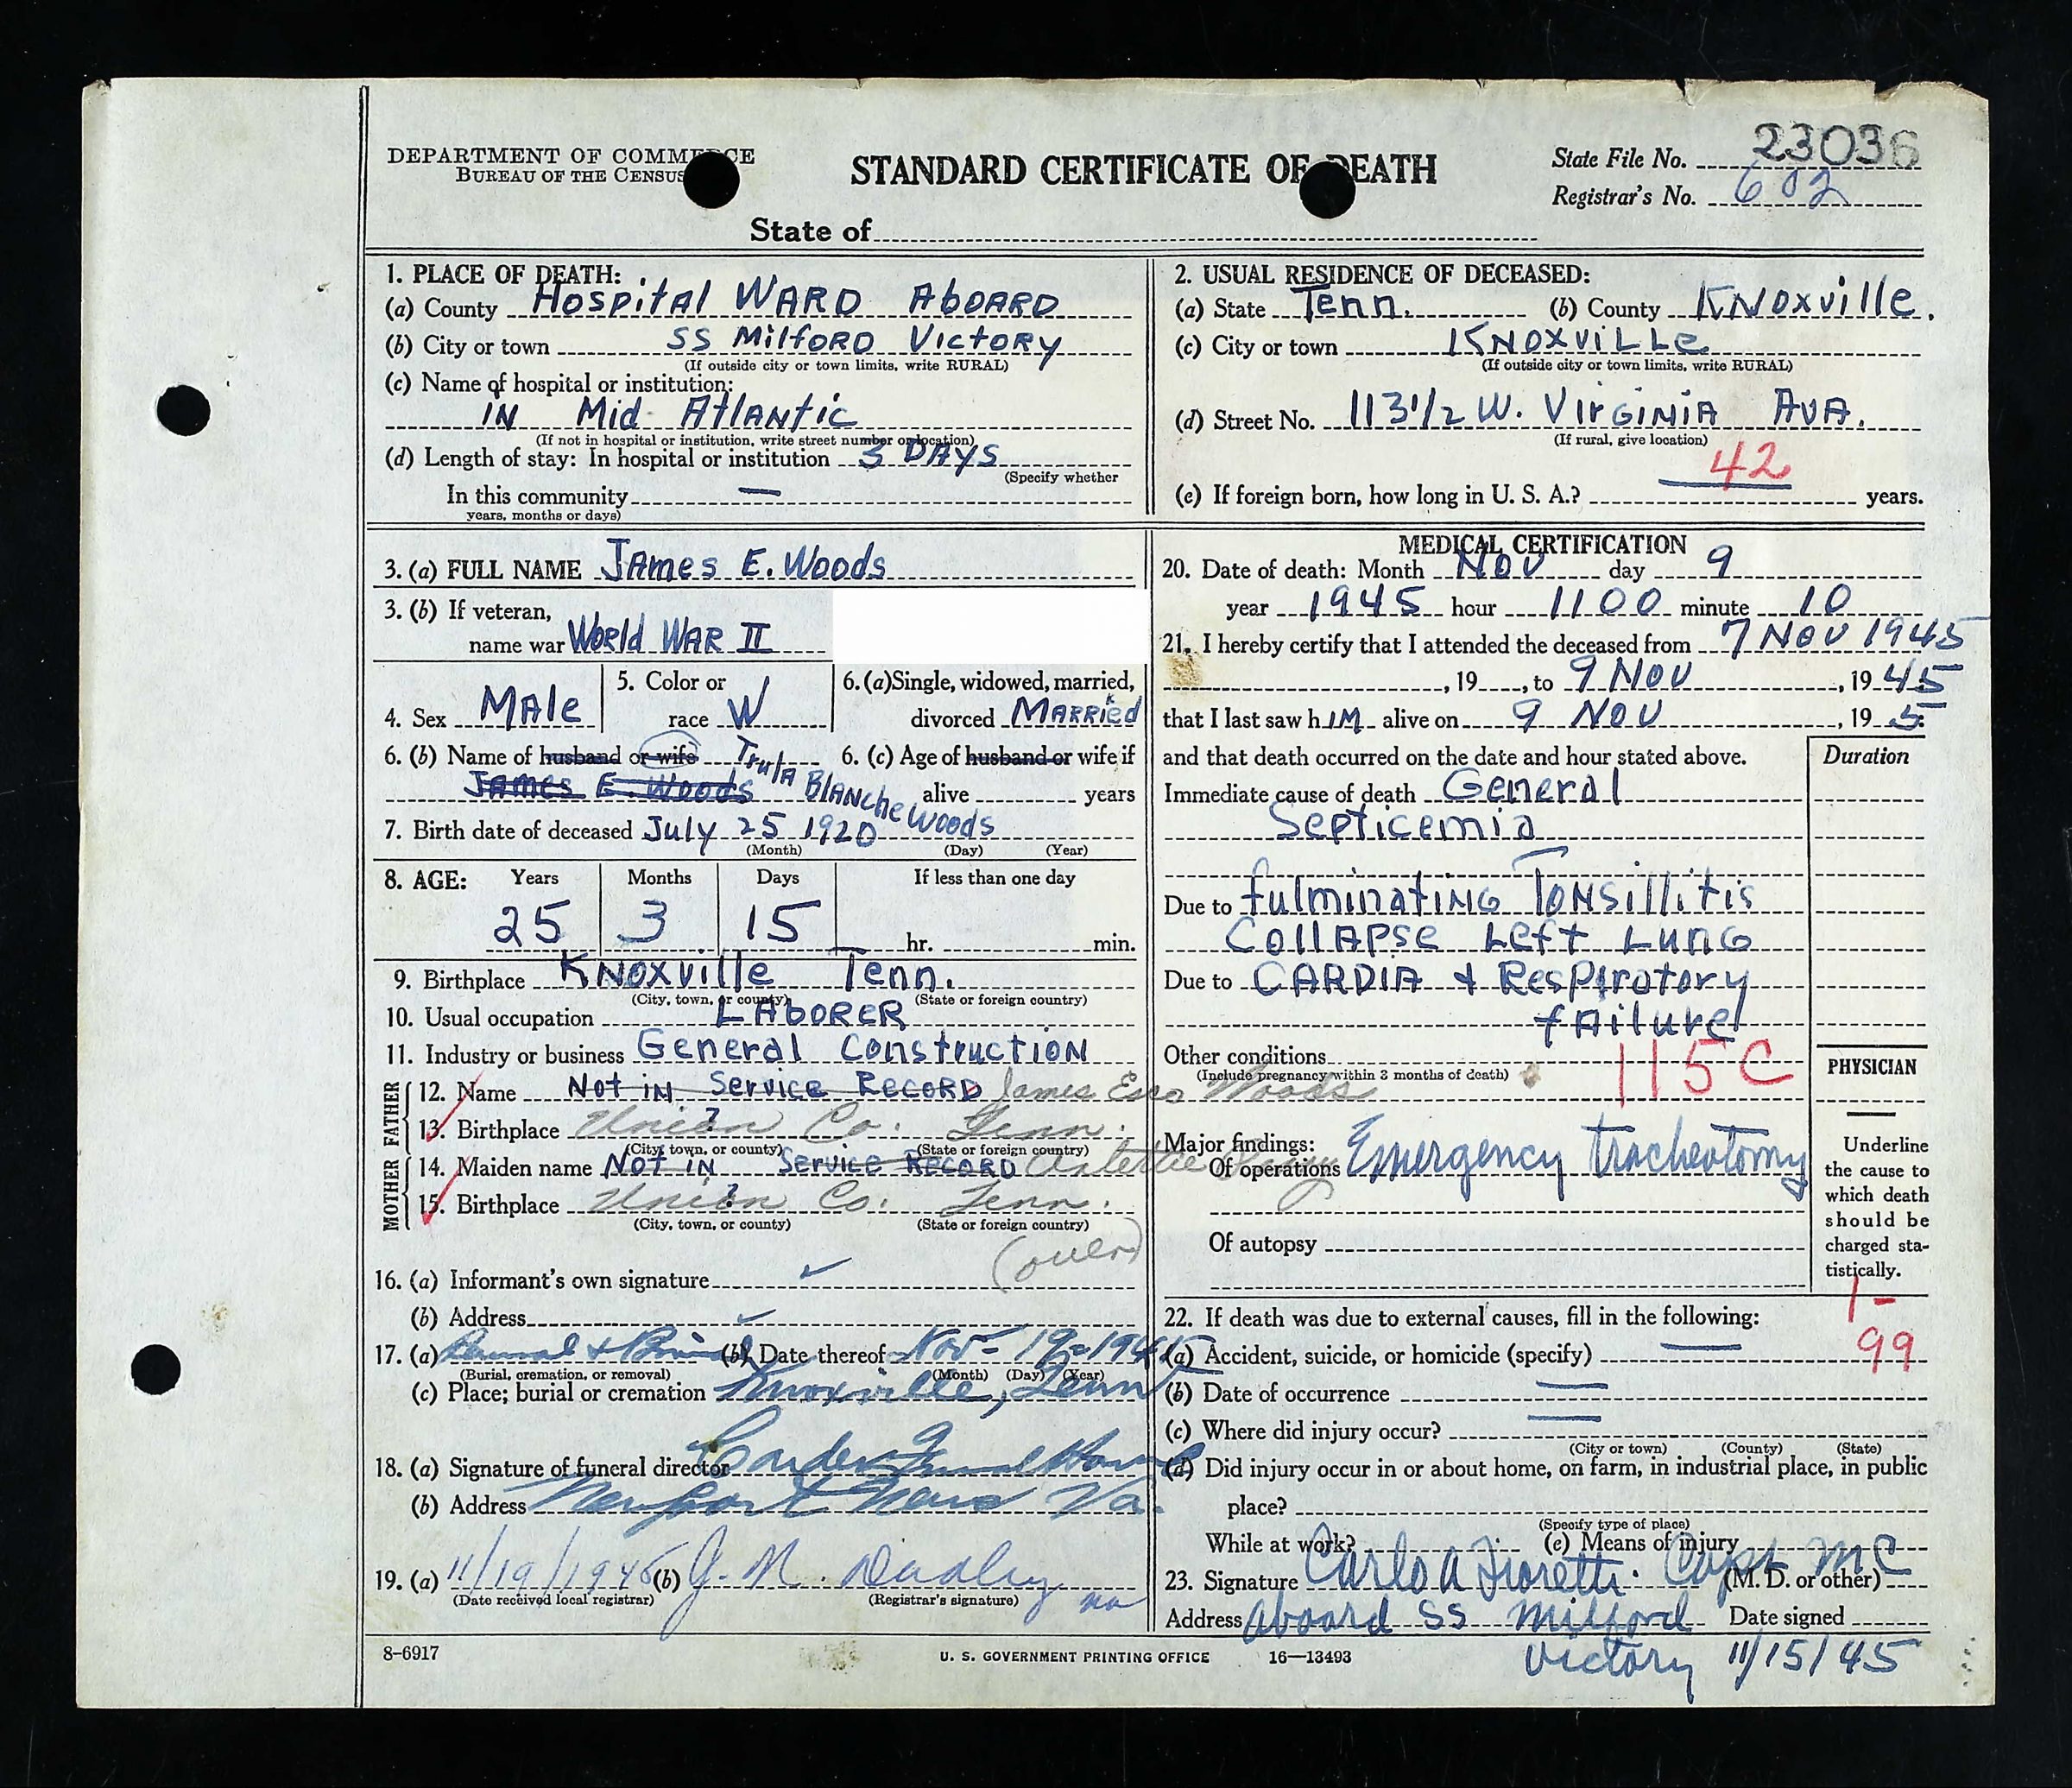 DEPARTMENT OF COMMERCE
BUREAU OF THE CENSUS
STANDARD CERTIFICATE OF DEATH
State of
State File No. 23036
Registrar's No. 602
1. PLACE OF DEATH:
(a) County Hospital WARD AboARD
(b) City or town SS MilfORD VictoRy
(If outside city or town limits, write RURAL)
(c) Name of hospital or institution:
IN Mid Atlantic
(If not in hospital or institution, write street number or location)
(d) Length of stay: In hospital or institution 3 DAys
(Specify whether
In this community —
years, months or days)
2. USUAL RESIDENCE OF DECEASED:
(a) State Tenn. (b) County KNoxville.
(c) City or town KNoxviLLe
(If outside city or town limits, write RURAL)
(d) Street No. 113 1/2 W. VirGiNiA AvA.
(If rural, give location)
42
(e) If foreign born, how long in U. S. A.? — years.
3. (a) FULL NAME JAmes E. Woods
3. (b) If veteran,
name war World WAR II
4. Sex MAle
5. Color or
race W
6. (a) Single, widowed, married,
divorced MARRied
6. (b) Name of husband or wife Trula
James E. Woods BLANche Woods
6. (c) Age of husband or wife if
alive years
7. Birth date of deceased July 25 1920
(Month) (Day) (Year)
8. AGE: Years Months Days If less than one day
25 3 15 hr. min.
9. Birthplace KNoxville Tenn.
(City, town, or county) (State or foreign country)
10. Usual occupation LAboRER
11. Industry or business General ConstructioN
FATHER
12. Name Not iN Service RecoRD James Esco Woods
13. Birthplace Union ? Co. Tenn.
(City, town, or county) (State or foreign country)
MOTHER
14. Maiden name Not iN Service RecoRD
15. Birthplace Union ? Co. Tenn.
(City, town, or county) (State or foreign country)
(over)
16. (a) Informant's own signature ✓
(b) Address ✓
17. (a) Removal & Burial (b) Date thereof Nov- 19-1945
(Burial, cremation, or removal) (Month) (Day) (Year)
(c) Place; burial or cremation Knoxville, Tenn
18. (a) Signature of funeral director Funeral Home
(b) Address Newport News Va.
19. (a) 11/19/1945 (b) J. M.
(Date received local registrar) (Registrar's signature)
MEDICAL CERTIFICATION
20. Date of death: Month Nov day 9
year 1945 hour 1100 minute 10
21. I hereby certify that I attended the deceased from 7 Nov 1945
, 19 , to 9 Nov , 1945
that I last saw hiM alive on 9 Nov , 19 5
and that death occurred on the date and hour stated above.
Duration
Immediate cause of death General
Septicemia
Due to fulminatiNG ToNsillitis
CollApse Left LunG
Due to CARDIA & RespIratory
fAilure
Other conditions
(Include pregnancy within 3 months of death)
115C
PHYSICIAN
Major findings:
Of operations Emergency tracheotomy
Of autopsy
Underline
the cause to
which death
should be
charged sta-
tistically.
22. If death was due to external causes, fill in the following:
1-
99
(a) Accident, suicide, or homicide (specify) —
(b) Date of occurrence —
(c) Where did injury occur? —
(City or town) (County) (State)
(d) Did injury occur in or about home, on farm, in industrial place, in public
place?
(Specify type of place)
While at work? (e) Means of injury
23. Signature Carlo A Fioretti. Capt MC (M. D. or other)
Address Aboard SS Milford Date signed
Victory 11/15/45
8-6917
U. S. GOVERNMENT PRINTING OFFICE 16—13493